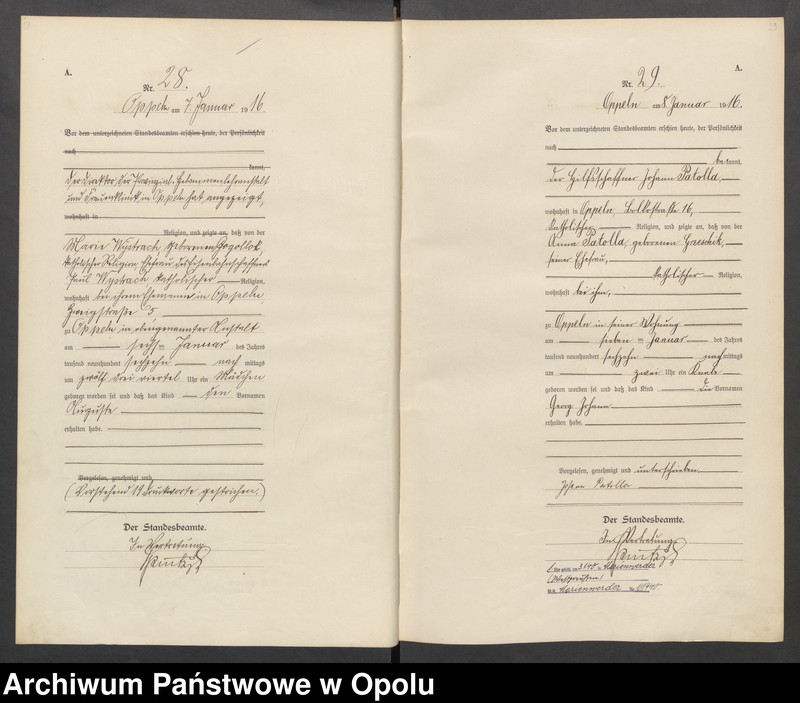 A.
Nr. 28.
Oppeln am 7. Januar 1916.
Vor dem unterzeichneten Standesbeamten erschien heute, der Persönlichkeit
nach
kannt,
der Direktor der Provinzial-Hebammenlehranstalt
und Frauenklinik in Oppeln hat angezeigt,
wohnhaft in
Religion, und zeigte an, daß von der
Marie Wystrach geborenen Gogollok,
katholischer Religion, Ehefrau des Eisenbahnschaffners
Paul Wystrach katholischer Religion,
wohnhaft bei ihrem Ehemanne in Oppeln
straße 5
zu Oppeln in obengenannter Anstalt
am sechs ten Januar des Jahres
tausend neunhundert sechzehn nach mittags
um zwölf drei viertel Uhr ein Mädchen
geboren worden sei und daß das Kind den Vornamen
Auguste
erhalten habe.
Vorgelesen, genehmigt und
(Vorstehend 19 Druckworte gestrichen.)
Der Standesbeamte.
In Vertretung
A.
Nr. 29.
Oppeln am 8. Januar 1916.
Vor dem unterzeichneten Standesbeamten erschien heute, der Persönlichkeit
nach
be kannt,
der Hilfsschaffner Johann Patolla,
wohnhaft in Oppeln, straße 16,
katholischer Religion, und zeigte an, daß von der
Anna Patolla, geborenen
seiner Ehefrau,
katholischer Religion,
wohnhaft bei ihm,
zu Oppeln in seiner Wohnung
am sieben ten Januar des Jahres
tausend neunhundert sechzehn nach mittags
um zwei Uhr ein Knabe
geboren worden sei und daß das Kind die Vornamen
Georg Johann
erhalten habe.
Vorgelesen, genehmigt und unterschrieben
Johann Patolla
Der Standesbeamte.
In Vertretung
Marienwerder
(Westpreußen)
Marienwerder